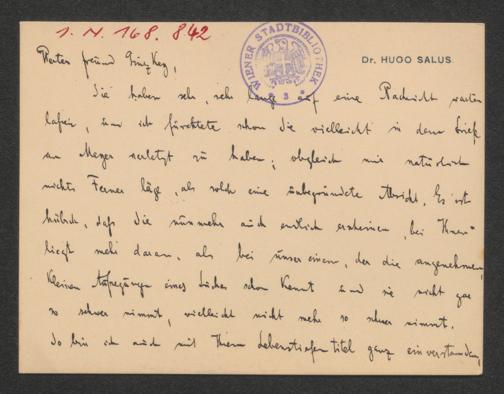 I. N. 168.842
WIENER STADTBIBLIOTHEK
Dr. HUGO SALUS
Werter Freund Ginzkey,
Sie haben sehr, sehr lange auf eine Nachricht warten
lassen, und ich fürchtete schon Sie vielleicht in dem Brief
an Meyer verletzt zu haben; obgleich mir natürlich
nichts Ferner läge, als solch eine unbegründete Absicht. Es ist
hübsch, daß Sie nunmehr auch endlich erscheinen, bei Ihnen
liegt mehr daran, als bei unser einem, der die angenehmen,
kleinen Aufregungen eines Buches schon kennt und sie nicht gar
so schwer nimmt, vielleicht nicht mehr so schwer nimmt.
So bin ich auch mit Ihrem titel ganz einverstanden,